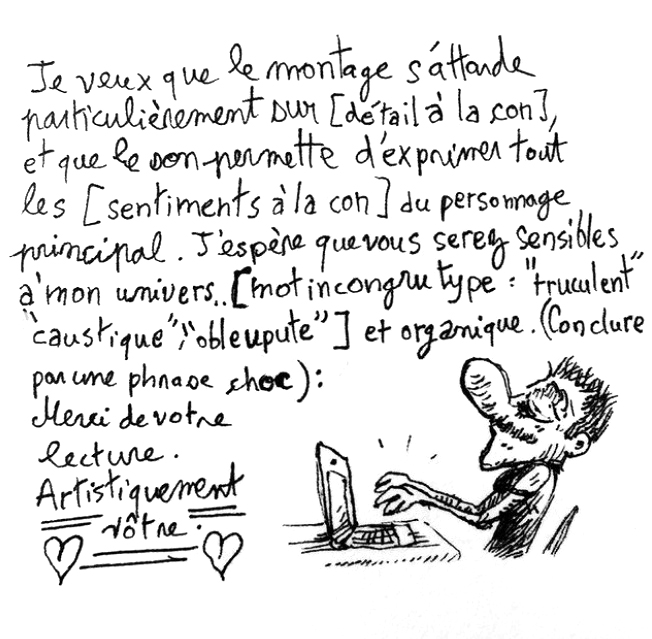 Je veux que le montage s'áttarde
particulièrement sur [détail à la con],
et que le son permette d'exprimer tout
les [sentiments à la con] du personnage
principal. J'espère que vous serez sensibles
à mon univers.. [mot incongru type : "truculent"
"caustique", "obleupute"] et organique. (Conclure
par une phrase choc) :
Merci de votre
lecture.
Artistiquement
vôtre.